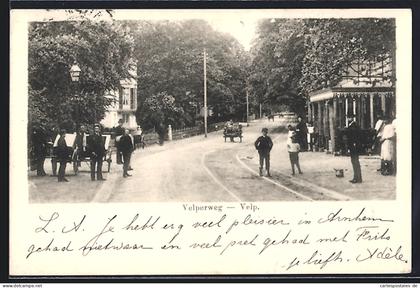 Velperweg — Velp.
L. A. Je hebt erg veel pleizier in Arnhem
gehad nietwaar en veel pret gehad met Frits
je liefh. Adèle.
www.cartepostales.de